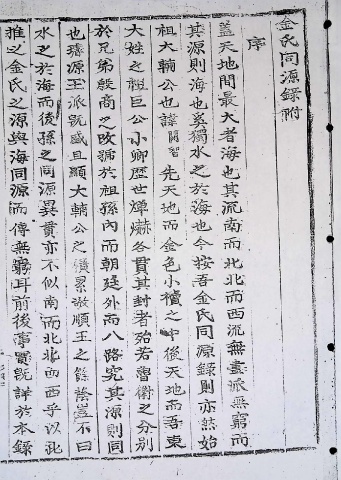 金氏同源錄附
序
蓋天地間最大者海也其流南而北北而西流無盡派無窮而
其源則海也奚獨水之於海也今按吾金氏同源錄則亦然始
祖大輔公也諱閼智先天地而金色小櫝之中後天地而吾東
大姓之祖巨公小卿歷世燀爀各貫其封者殆若魯衛之分別
於兄弟殷商之改號於祖孫內而朝廷外而八路究其源則同
也璿源玉派旣盛且顯大輔公之積累敬順王之餘蔭豈不曰
水之於海而後孫之同源異貫亦不似南而北北而西乎以此
推之金氏之源與海同源而傳無窮耳前後事實旣詳於本錄